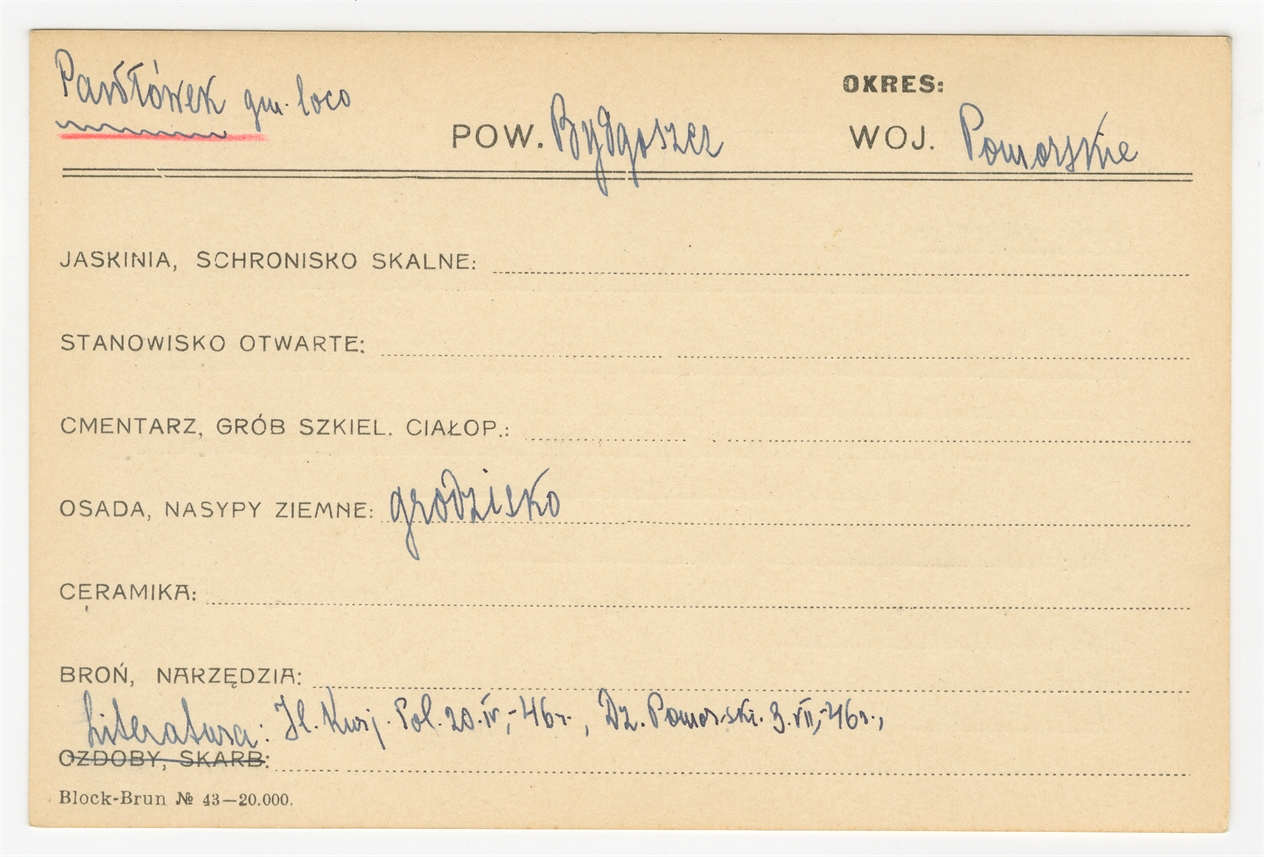 Pawłówek gm. loco
OKRES:
POW. Bydgoszcz WOJ. Pomorskie
JASKINIA, SCHRONISKO SKALNE:
STANOWISKO OTWARTE:
CMENTARZ, GRÓB SZKIEL. CIAŁOP.:
OSADA, NASYPY ZIEMNE: grodzisko
CERAMIKA:
BROŃ, NARZĘDZIA:
Literatura: Il. Kurj. Pol. 20.IV.-46r., Dz. Pomorski. 3.VII.-46r.,
OZDOBY, SKARB:
Block-Brun № 43—20.000.